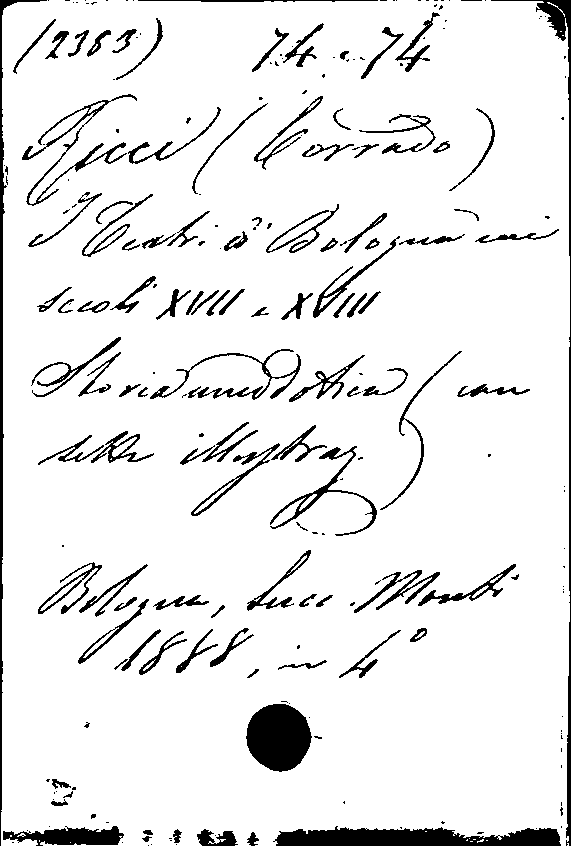 (2383) 74 . 74
Ricci (Corrado)
I Teatri di Bologna nei
secoli XVII e XVIII
Storia aneddotica (con
sette illustraz.)
Bologna, Succ. Monti
1888, in 4°